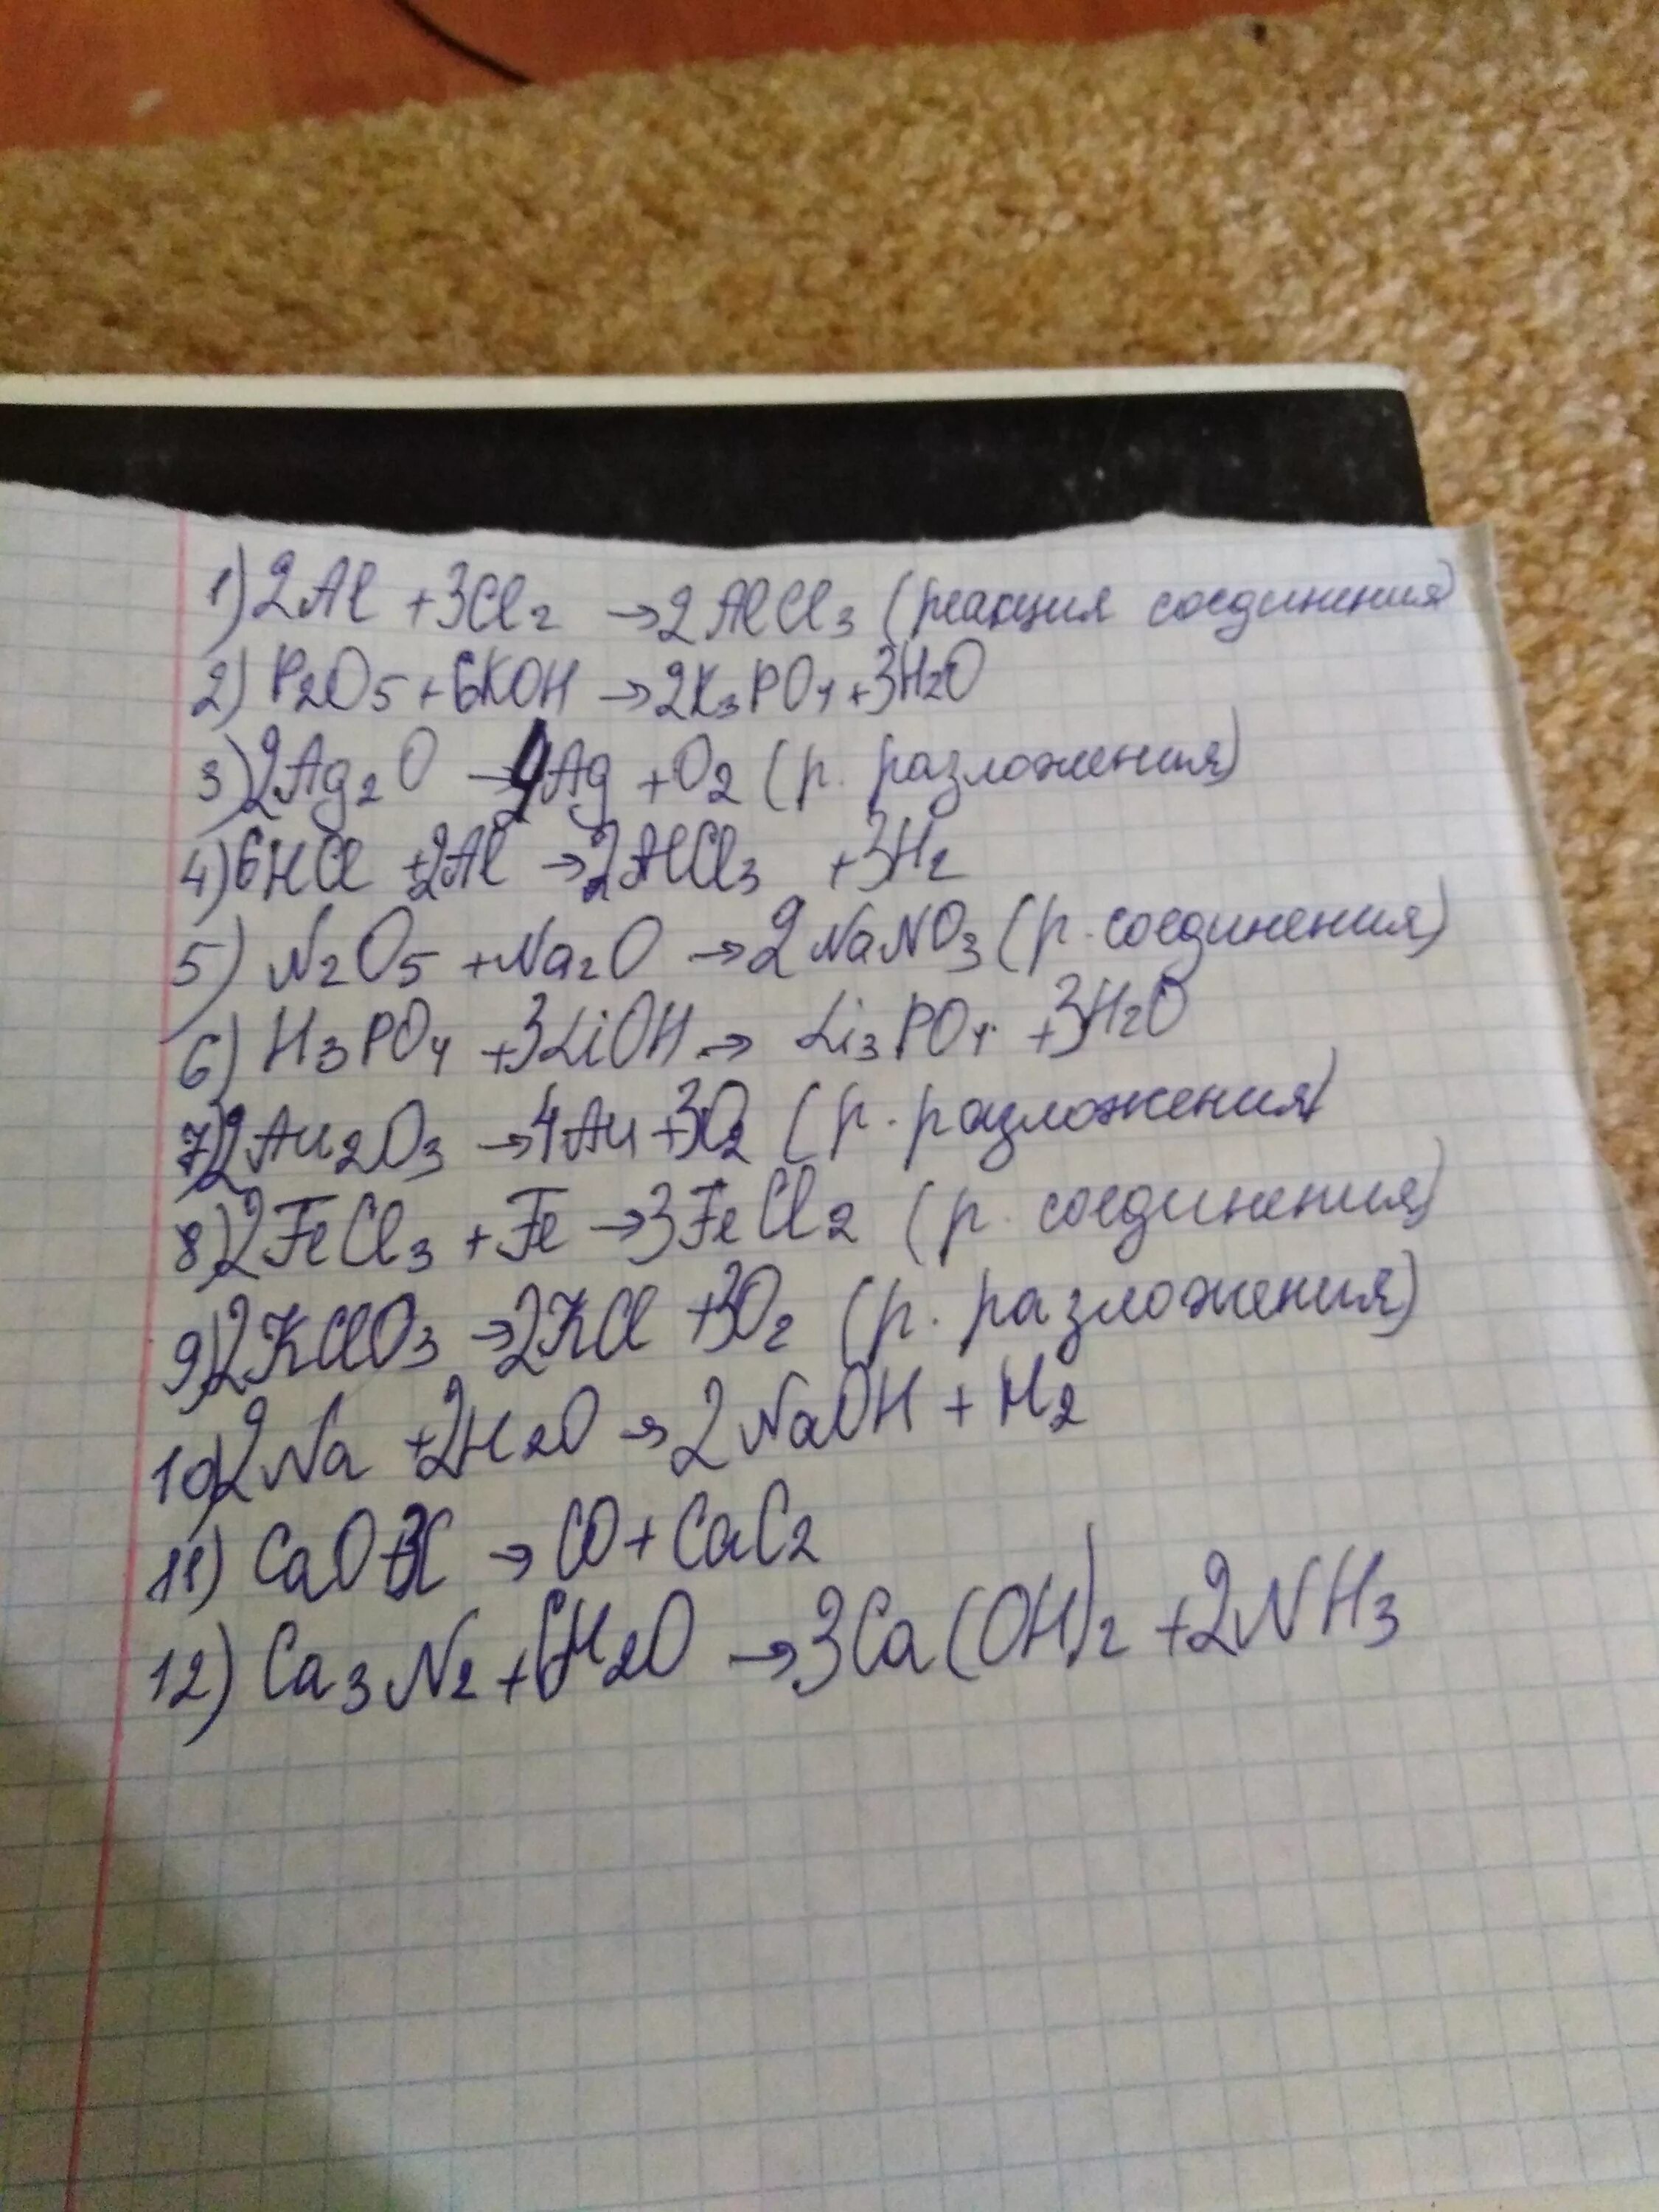 1) 2Al + 3Cl₂ → 2AlCl₃ (реакция соединения)
2) P₂O₅ + 6KOH → 2K₃PO₄ + 3H₂O
3) 2Ag₂O → 4Ag + O₂ (р. разложения)
4) 6HCl + 2Al → 2AlCl₃ + 3H₂
5) N₂O₅ + Na₂O → 2NaNO₃ (р. соединения)
6) H₃PO₄ + 3LiOH → Li₃PO₄ + 3H₂O
7) 2Au₂O₃ → 4Au + 3O₂ (р. разложения)
8) 2FeCl₃ + Fe → 3FeCl₂ (р. соединения)
9) 2KClO₃ → 2KCl + 3O₂ (р. разложения)
10) 2Na + 2H₂O → 2NaOH + H₂
11) CaO + 3C → CO + CaC₂
12) Ca₃N₂ + 6H₂O → 3Ca(OH)₂ + 2NH₃